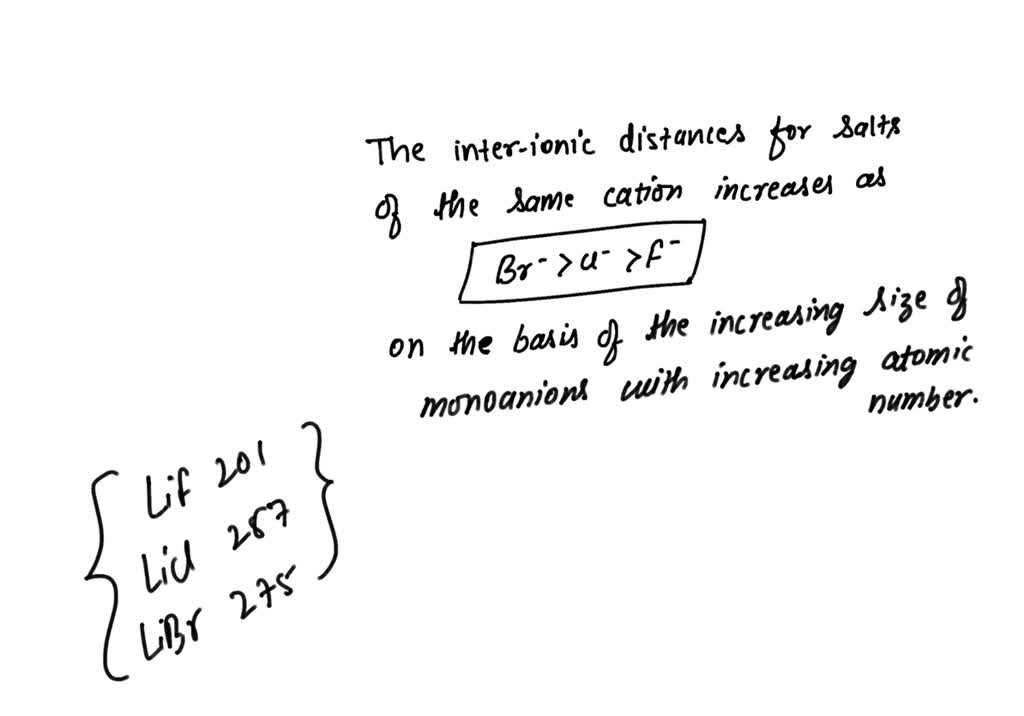 The inter-ionic distances for salts
of the same cation increases as
Br⁻ > Cl⁻ > F⁻
on the basis of the increasing size of
monoanions with increasing atomic
number.
LiF 201
LiCl 257
LiBr 275